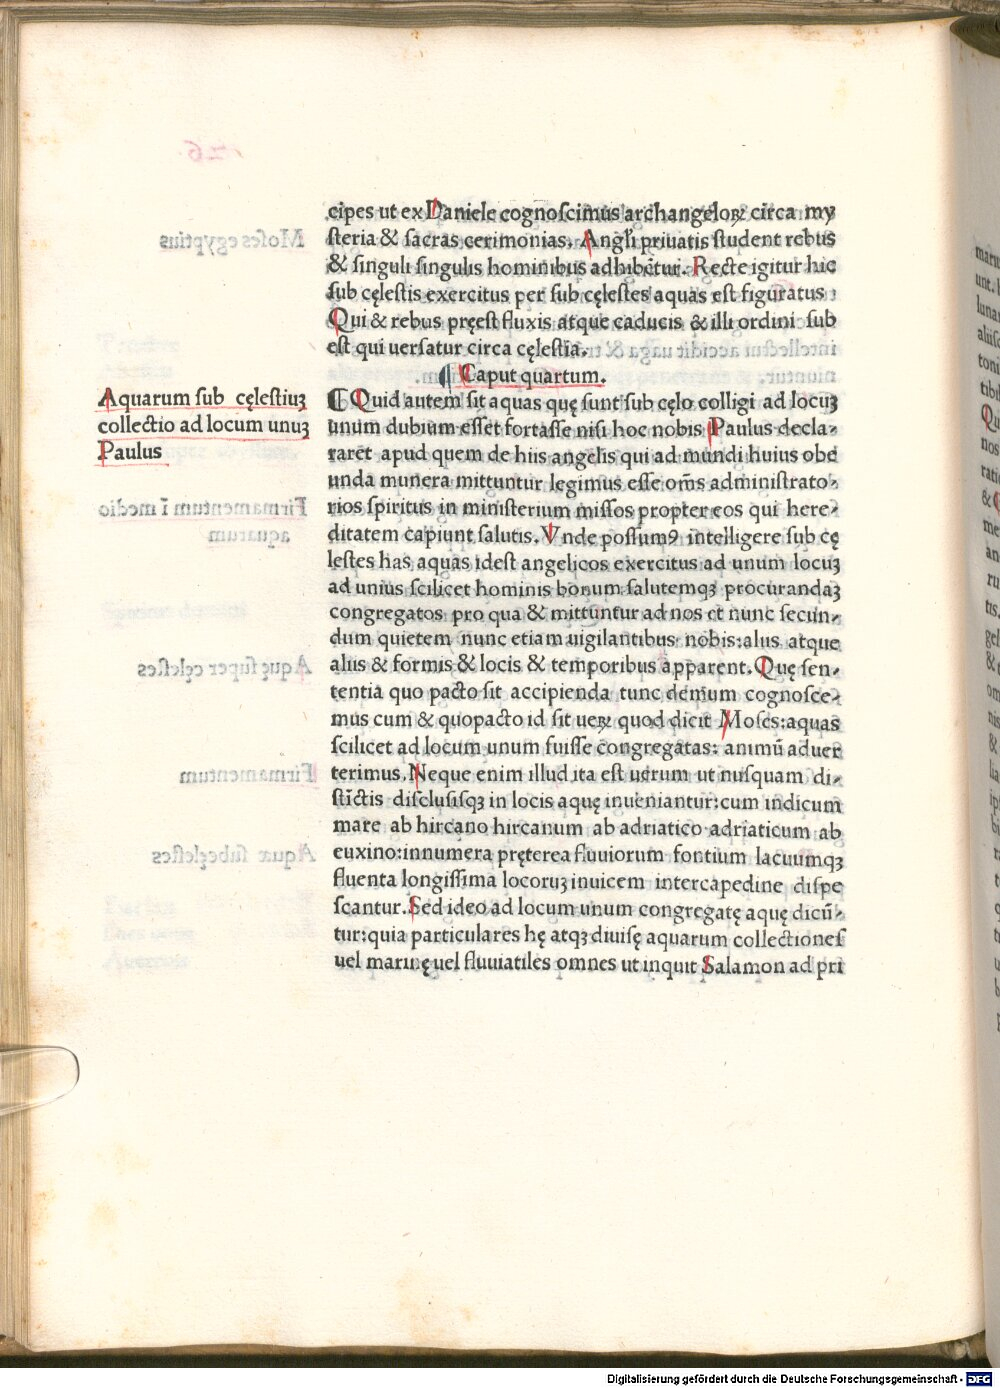 cipes ut ex Daniele cognoscimus archangeloꝝ circa my
steria & sacras cerimonias. Angli priuatis student rebus
& singuli singulis hominibus adhibẽtur. Recte igitur hic
sub cęlestis exercitus per sub cęlestes aquas est figuratus:
Qui & rebus pręest fluxis atque caducis & illi ordini sub
est qui uersatur circa cęlestia.
¶ Caput quartum.
Aquarum sub cęlestiuꝫ
collectio ad locum unuꝫ
Paulus
¶ Quid autem sit aquas quę sunt sub cęlo colligi ad locuꝫ
unum dubium esset fortasse nisi hoc nobis Paulus decla-
raret̃ apud quem de hiis angelis qui ad mundi huius obe
unda munera mittuntur legimus esse om̃s administrato-
rios spiritus in ministerium missos propter eos qui here-
ditatem capiunt salutis. Vnde possumꝰ intelligere sub cę
lestes has aquas idest angelicos exercitus ad unum locuꝫ
ad unius scilicet hominis bonum salutemqꝫ procurandaꝫ
congregatos pro qua & mittuntur ad nos et nunc secun-
dum quietem nunc etiam uigilantibus nobis: alus atque
aliis & formis & locis & temporibus apparent. Quę sen-
tentia quo pacto sit accipienda tunc demum cognosce-
mus cum & quopacto id sit ueꝝ quod dicit Moses: aquas
scilicet ad locum unum fuisse congregatas: animũ aduer
terimus. Neque enim illud ita est uerum ut nusquam di-
stĩctis disclusisqꝫ in locis aquę inueniantur: cum indicum
mare ab hircano hircanum ab adriatico adriaticum ab
euxino: innumera pręterea fluuiorum fontium lacuumqꝫ
fluenta longissima locoruꝫ inuicem intercapedine dispe
scantur. Sed ideo ad locum unum congregatę aquę dicũ-
tur: quia particulares hę atqꝫ diuisę aquarum collectiones
uel marinę uel fluuiatiles omnes ut inquit Salamon ad pri
Digitalisierung gefördert durch die Deutsche Forschungsgemeinschaft - DFG